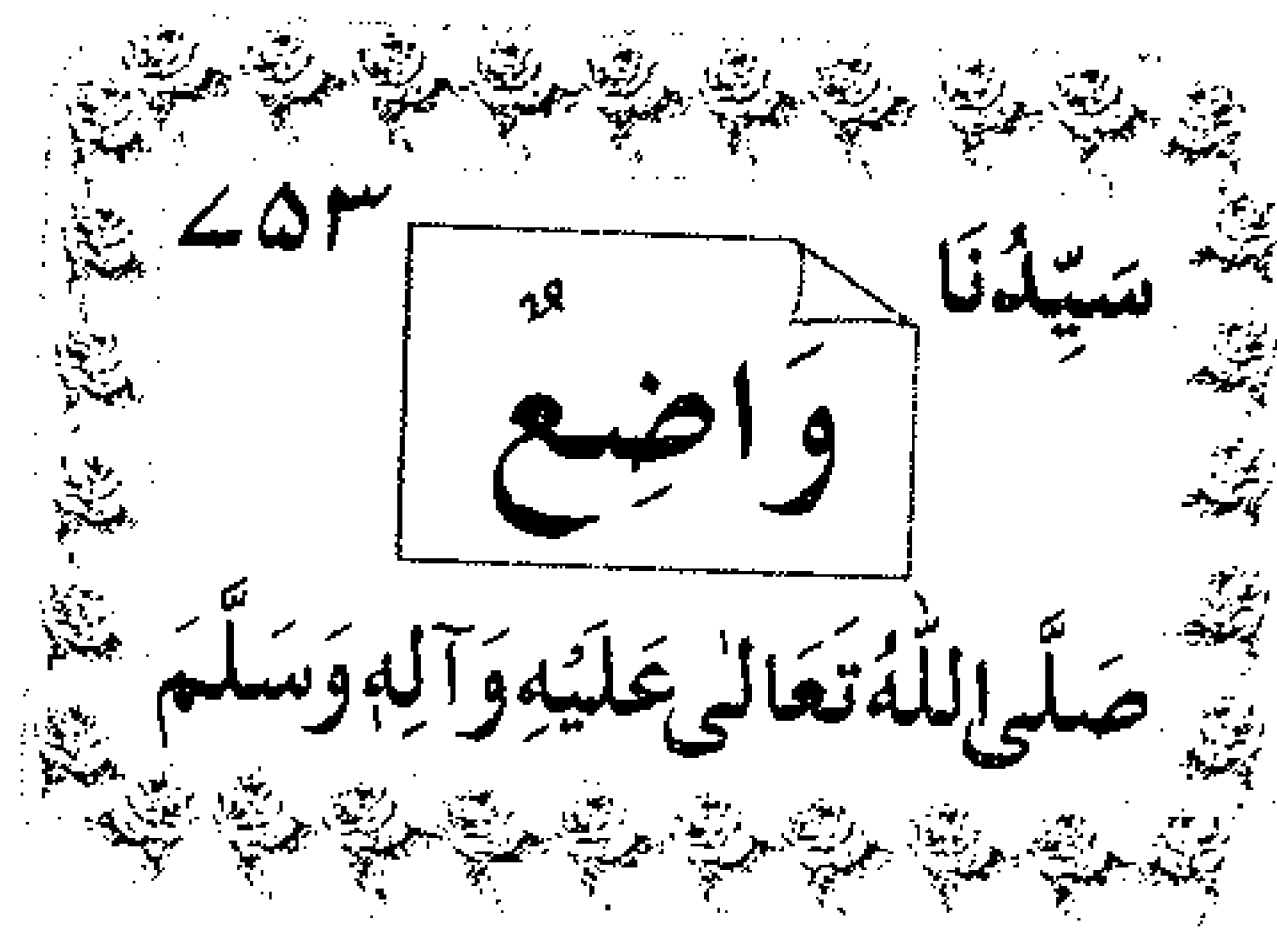 سَيِّدُنَا ۷۵۳
وَاضِعٌ
صَلَّی اللّٰهُ تَعَالٰی عَلَيْهِ وَآلِهٖ وَسَلَّمَ